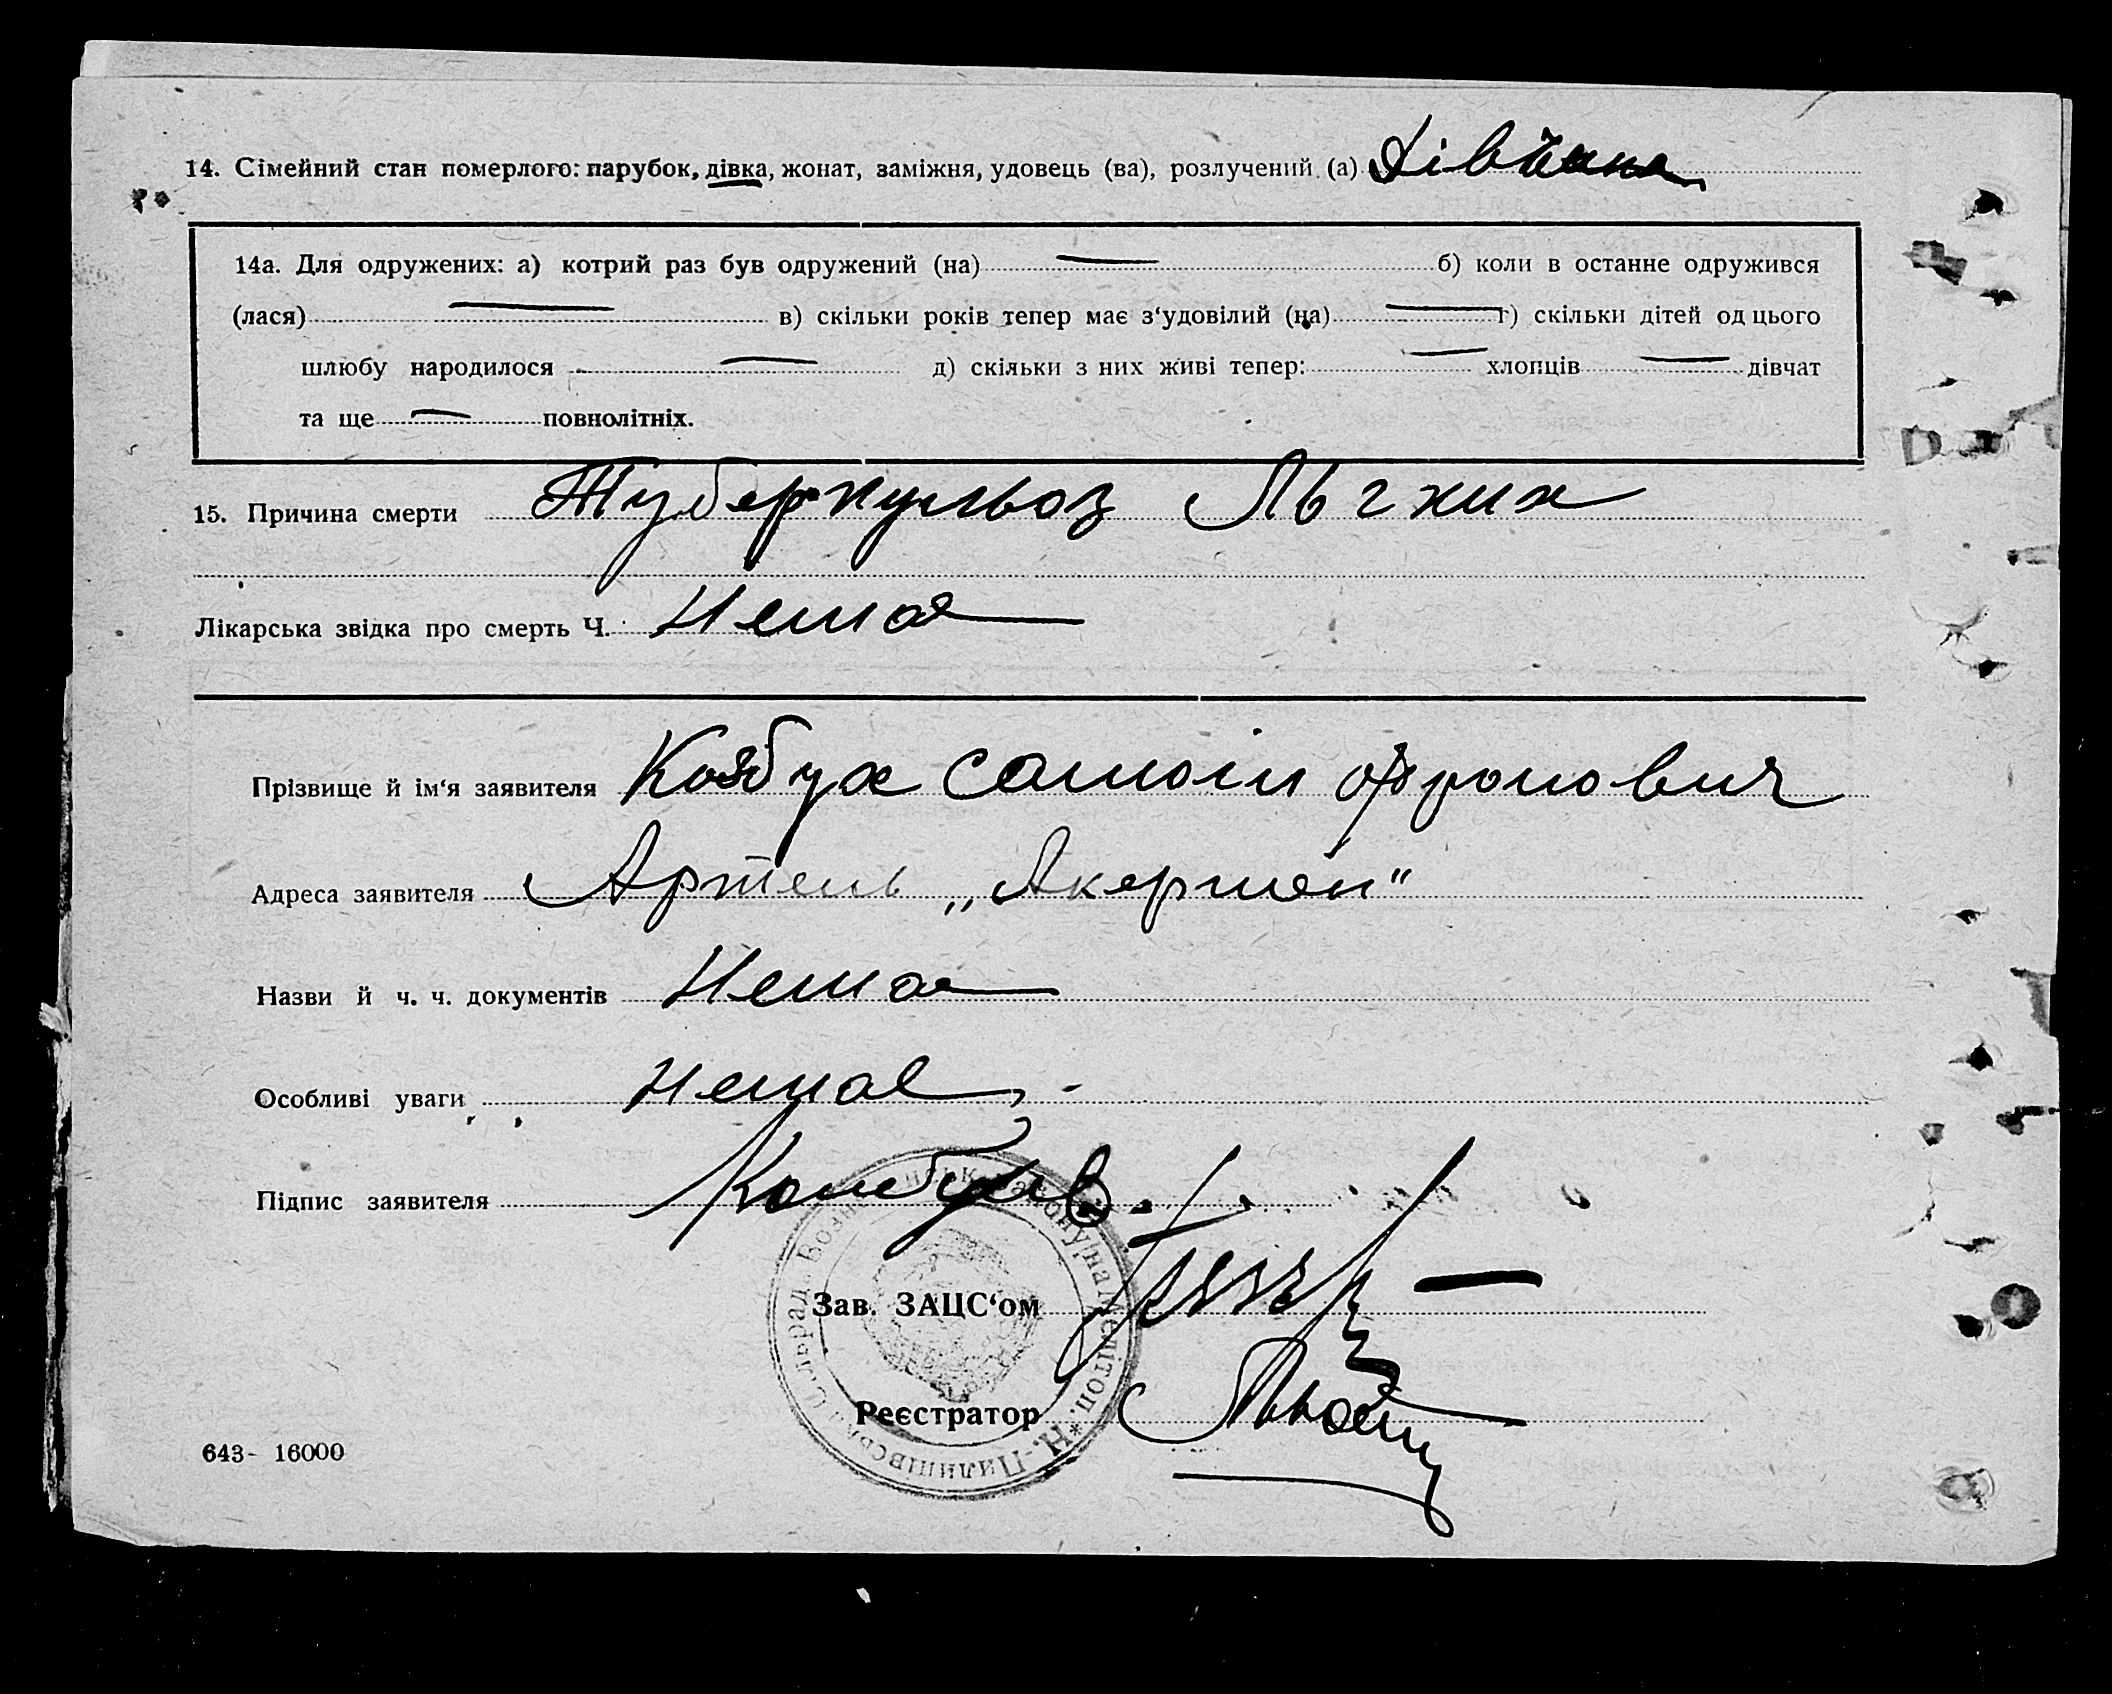 14. Сімейний стан померлого: парубок, дівка, жонат, заміжня, удовець (ва), розлучений (а) Дівчана
14а. Для одружених: а) котрий раз був одружений (на) — б) коли в останне одружився
(лася) — в) скільки років тепер має з‘удовілий (на) — г) скільки дітей од цього
шлюбу народилося — д) скільки з них живі тепер: — хлопців — дівчат
та ще — повнолітніх.
15. Причина смерти Туберкульоз Льгких
Лікарська звідка про смерть Ч. Немає
Прізвище й ім‘я заявителя Самоіл
Адреса заявителя Артель „Акермен"
Назви й ч. ч. документів Немає
Особливі уваги немає
Підпис заявителя
Зав. ЗАЦС‘ом
Реєстратор
643- 16000